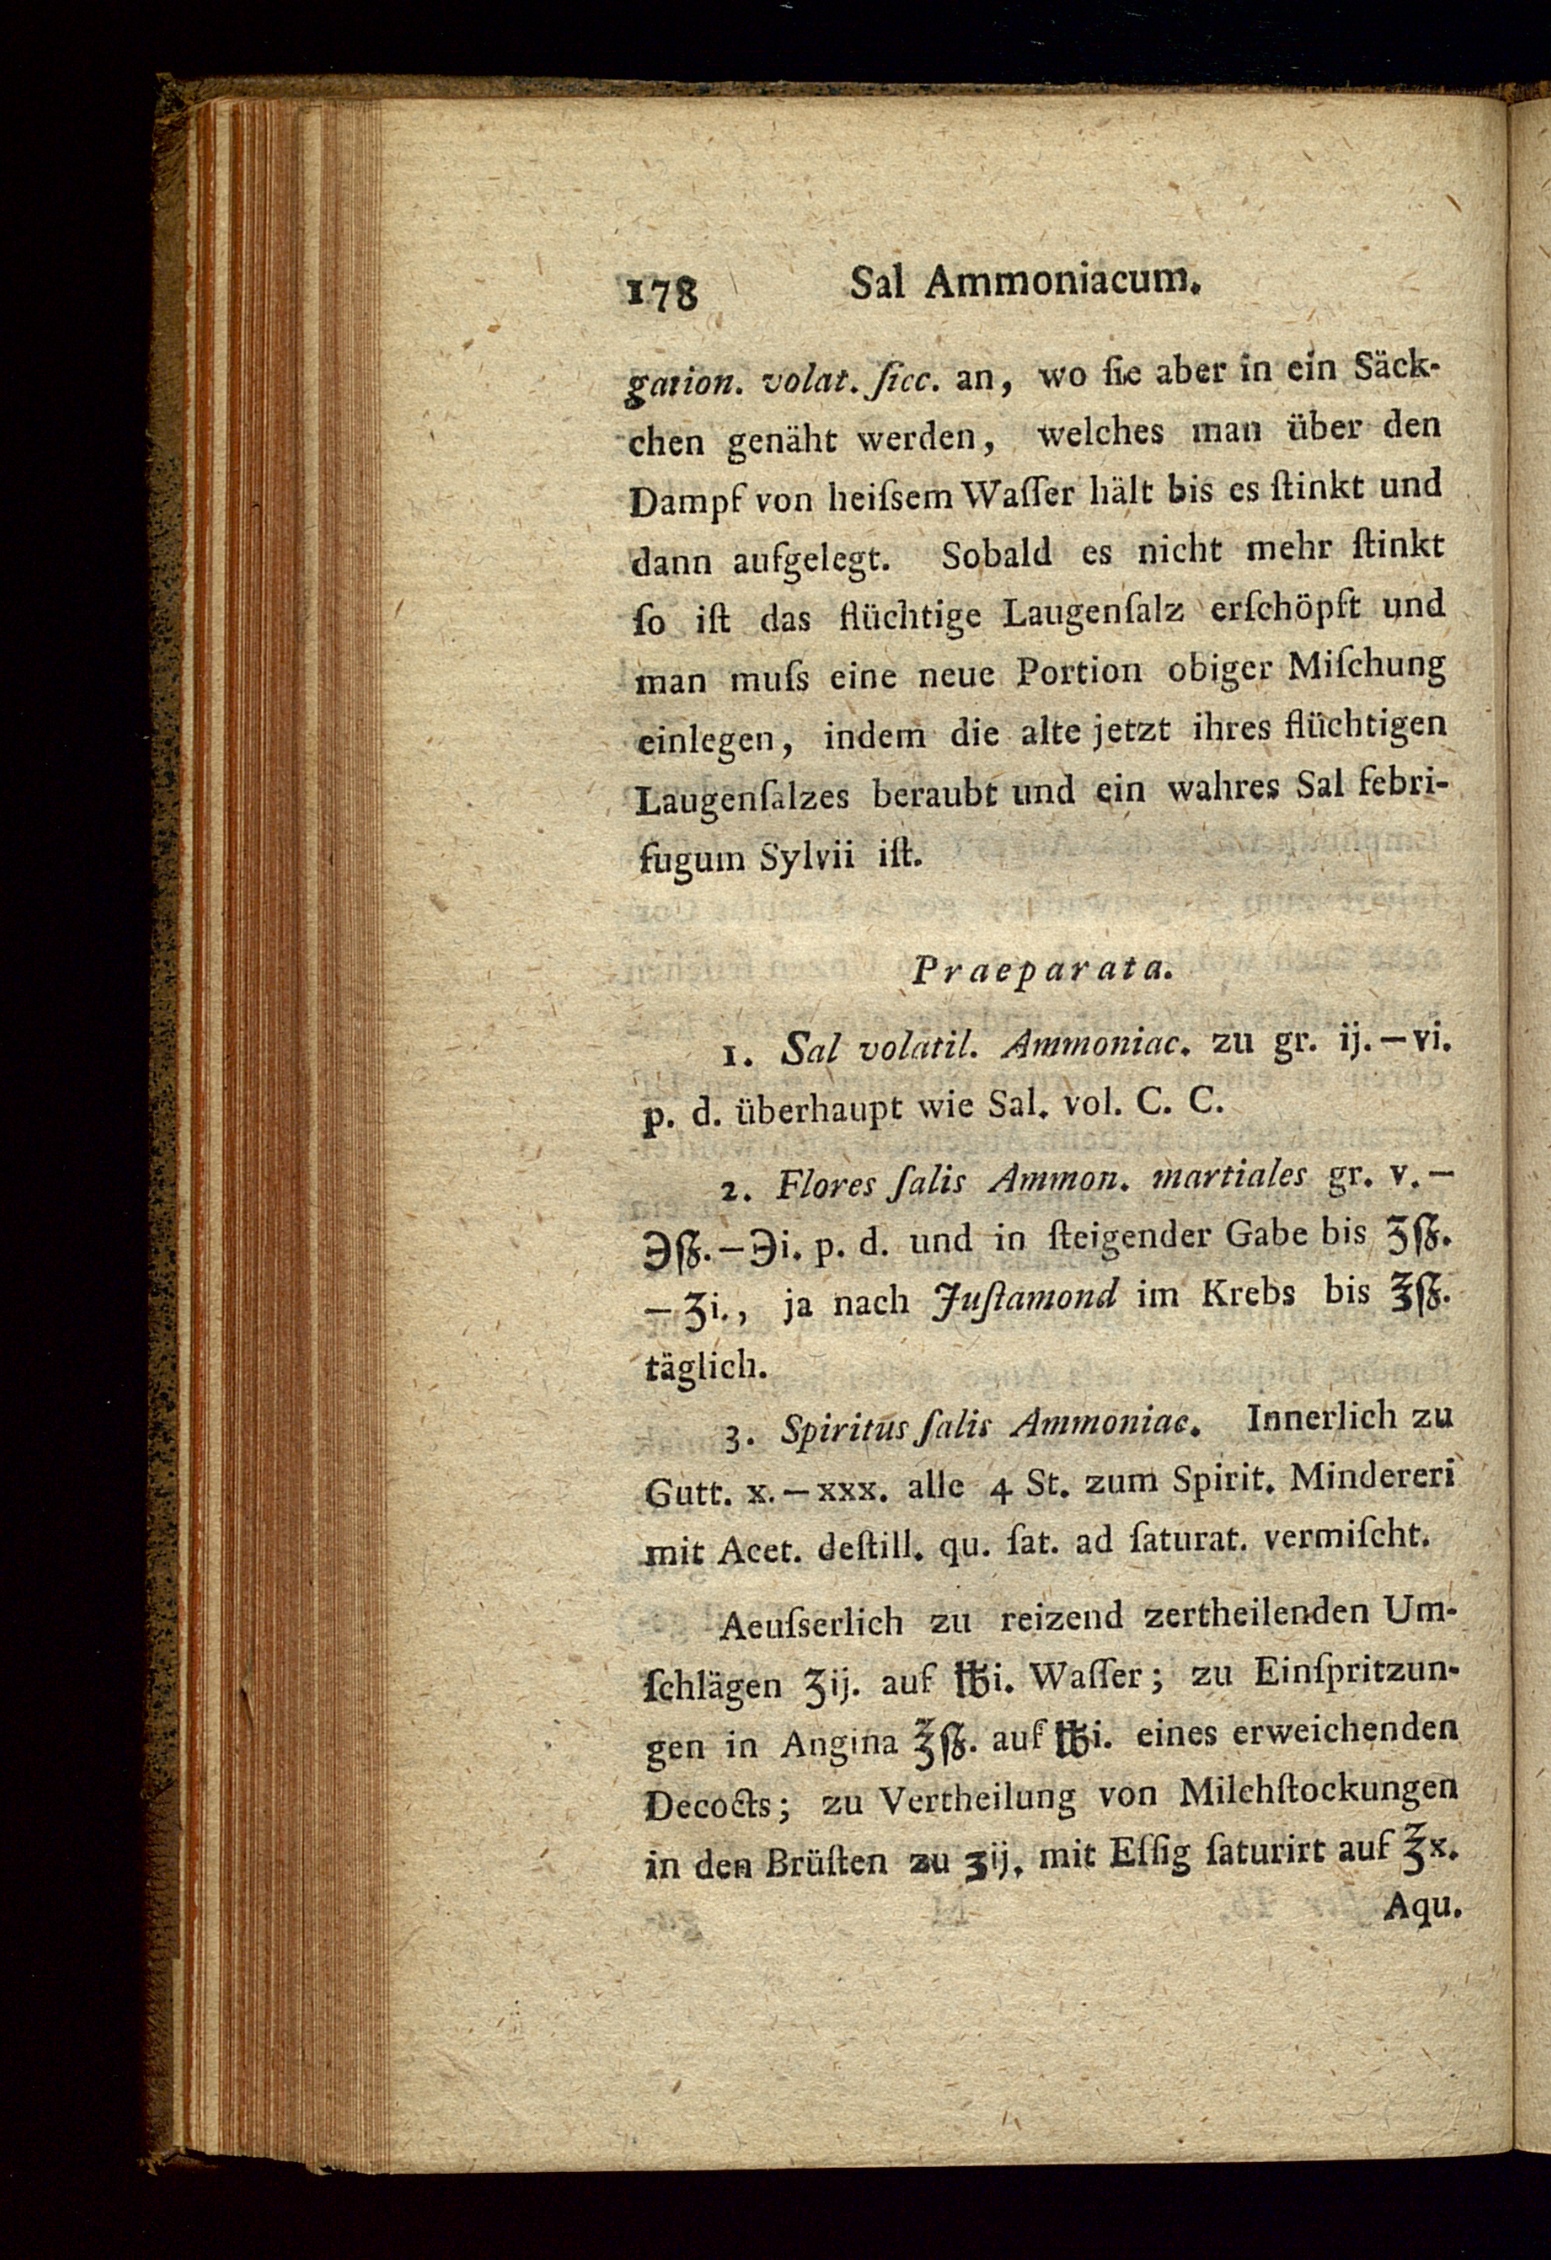 178 Sal Ammoniacum.
gation. volat. ſicc. an, wo ſie aber in ein Säck-
chen genäht werden, welches man über den
Dampf von heiſsem Waſſer hält bis es ſtinkt und
dann aufgelegt. Sobald es nicht mehr ſtinkt
ſo iſt das flüchtige Laugenſalz erſchöpft und
man muſs eine neue Portion obiger Miſchung
einlegen, indem die alte jetzt ihres flüchtigen
Laugenſalzes beraubt und ein wahres Sal febri-
fugum Sylvii iſt.
Praeparata.
1. Sal volatil. Ammoniac. zu gr. ij. — vi.
p. d. überhaupt wie Sal. vol. C. C.
2. Flores ſalis Ammon. martiales gr. v. —
℈ſß. — ℈i. p. d. und in ſteigender Gabe bis ʒſß.
— ʒi., ja nach Juſtamond im Krebs bis ℥ſß.
täglich.
3. Spiritus ſalis Ammoniac. Innerlich zu
Gutt. x. — xxx. alle 4 St. zum Spirit. Mindereri
mit Acet. deſtill. qu. ſat. ad ſaturat. vermiſcht.
Aeuſserlich zu reizend zertheilenden Um-
ſchlägen ʒij. auf ℔i. Waſſer; zu Einſpritzun-
gen in Angina ℥ſß. auf ℔i. eines erweichenden
Decocts; zu Vertheilung von Milchſtockungen
in den Brüſten zu ʒij. mit Eſſig ſaturirt auf ℥x.
Aqu.